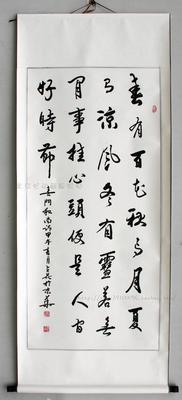 春有百花秋有月夏
有涼風冬有雪若無
閒事挂心頭便是人間
好時節 無門和尚詩甲午 月 於京華